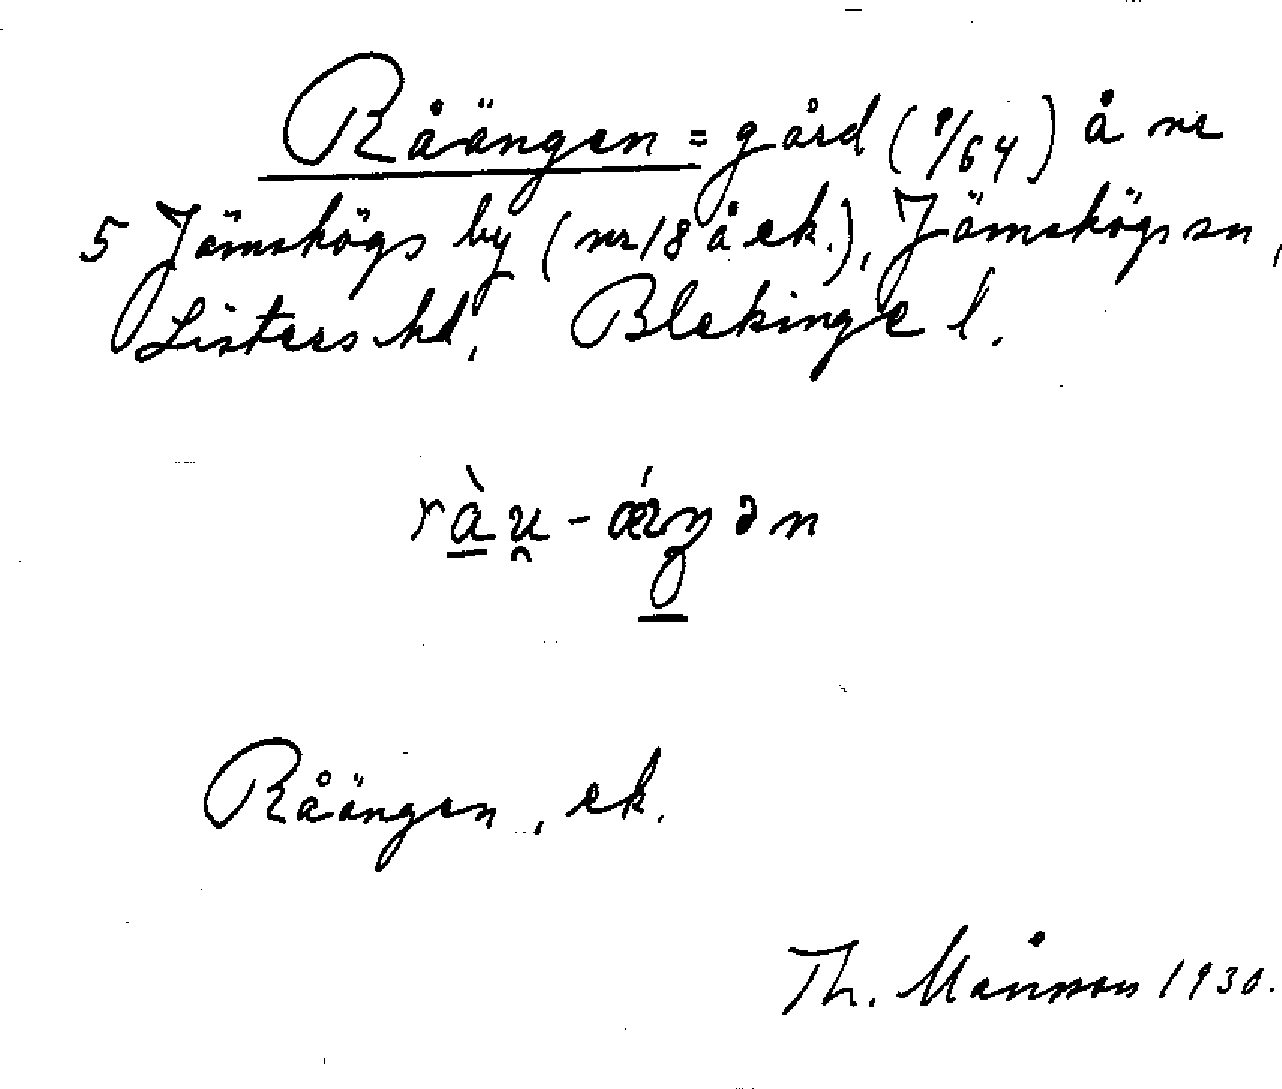 Råängen = gård (9/64) å nr
5 Jämshögs by (nr 18 å ek.), Jämshögs sn,
Listers hd, Blekinge l.
ràu̯-ǽŋən
Råängen, ek.
Th. Månsson 1930.